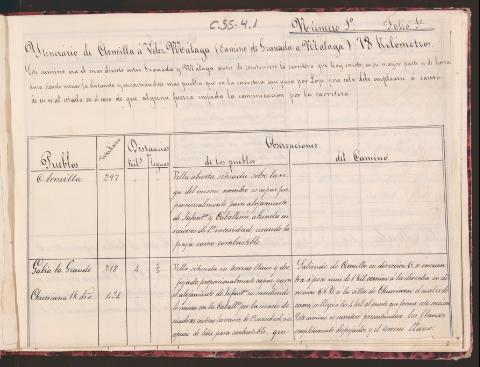 C.55-4.1
Número 1º Folio 1º
Itinerario de Armilla á Velez Málaga (Camino de Granada a Málaga) 78 Kilómetros.
Este camino era el mas directo entre Granada y Málaga antes de construirse la carretera que hoy existe, es su mayor parte de herra
siendo menor la distancia y encontrándose mas pueblos que en la carretera que pasa por Loja pero solo debe emplearse á causa
de su mal estado, en el caso de que alguna fuerza impida la comunicacion por la carretera.
Pueblos
Distancias
Kils. Leguas
Observaciones
de los pueblos
del Camino
Armilla 297
Villa abierta, situada sobre la ve
ga del mismo nombre es capaz pro
porcionalmente para alojamiento
de Infantª y Caballería, abunda en
recursos de 1ª necesidad usando la
paja como combustible
Gabia la Grande 718 4
Villa situada en terreno llano y des
pejado, proporcionalmente capaz para
el alojamiento de Infantª
Churriana
Saliendo de Armilla en direccion O. se encuen
tra á poco mas de 1 Kil. camino á la derecha en di
reccion á la villa de Churriana, el cual es de
carro, se llega á los 4 Kil. al pueblo que forma esta seccion
Este camino es carretero presentándose los flancos
completamente despejados y el terreno llano.